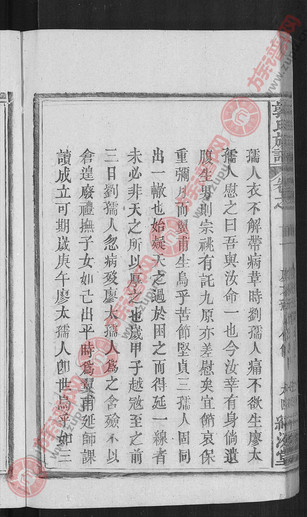 孺人衣不解帶病革時劉孺人痛不欲生廖太
孺人慰之曰吾與汝命一也今汝幸有身倘遺
腹生男則宗祧有託九原亦差慰矣宜節哀保
重彌月而翼甫生烏乎苦節堅貞三孺人固同
出一轍也始疑天之過於困之而得延一線者
未必非天之所以厚之也歲甲子越寇至之前
三日劉孺人忽病歿廖太孺人為之含殮不以
倉遑廢禮撫子女如己出平時為翼甫延師課
讀成立可期歲庚午廖太孺人即世烏乎如三
族谱网